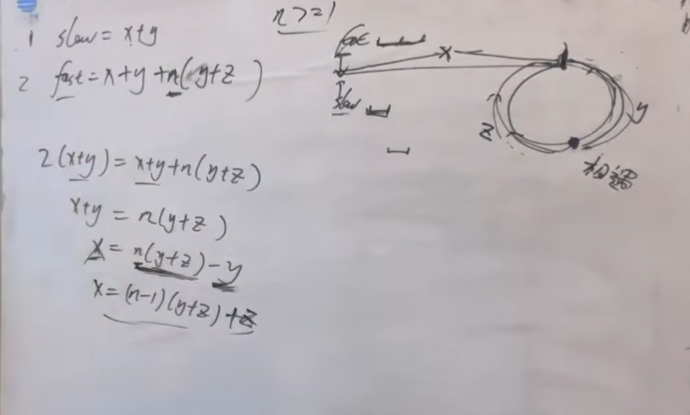 n>=1
1 slow = x+y
2 fast = x+y+n(y+z)
2(x+y) = x+y+n(y+z)
x+y = n(y+z)
x = n(y+z)-y
x = (n-1)(y+z)+z
fast
x
slow
y
z
相遇